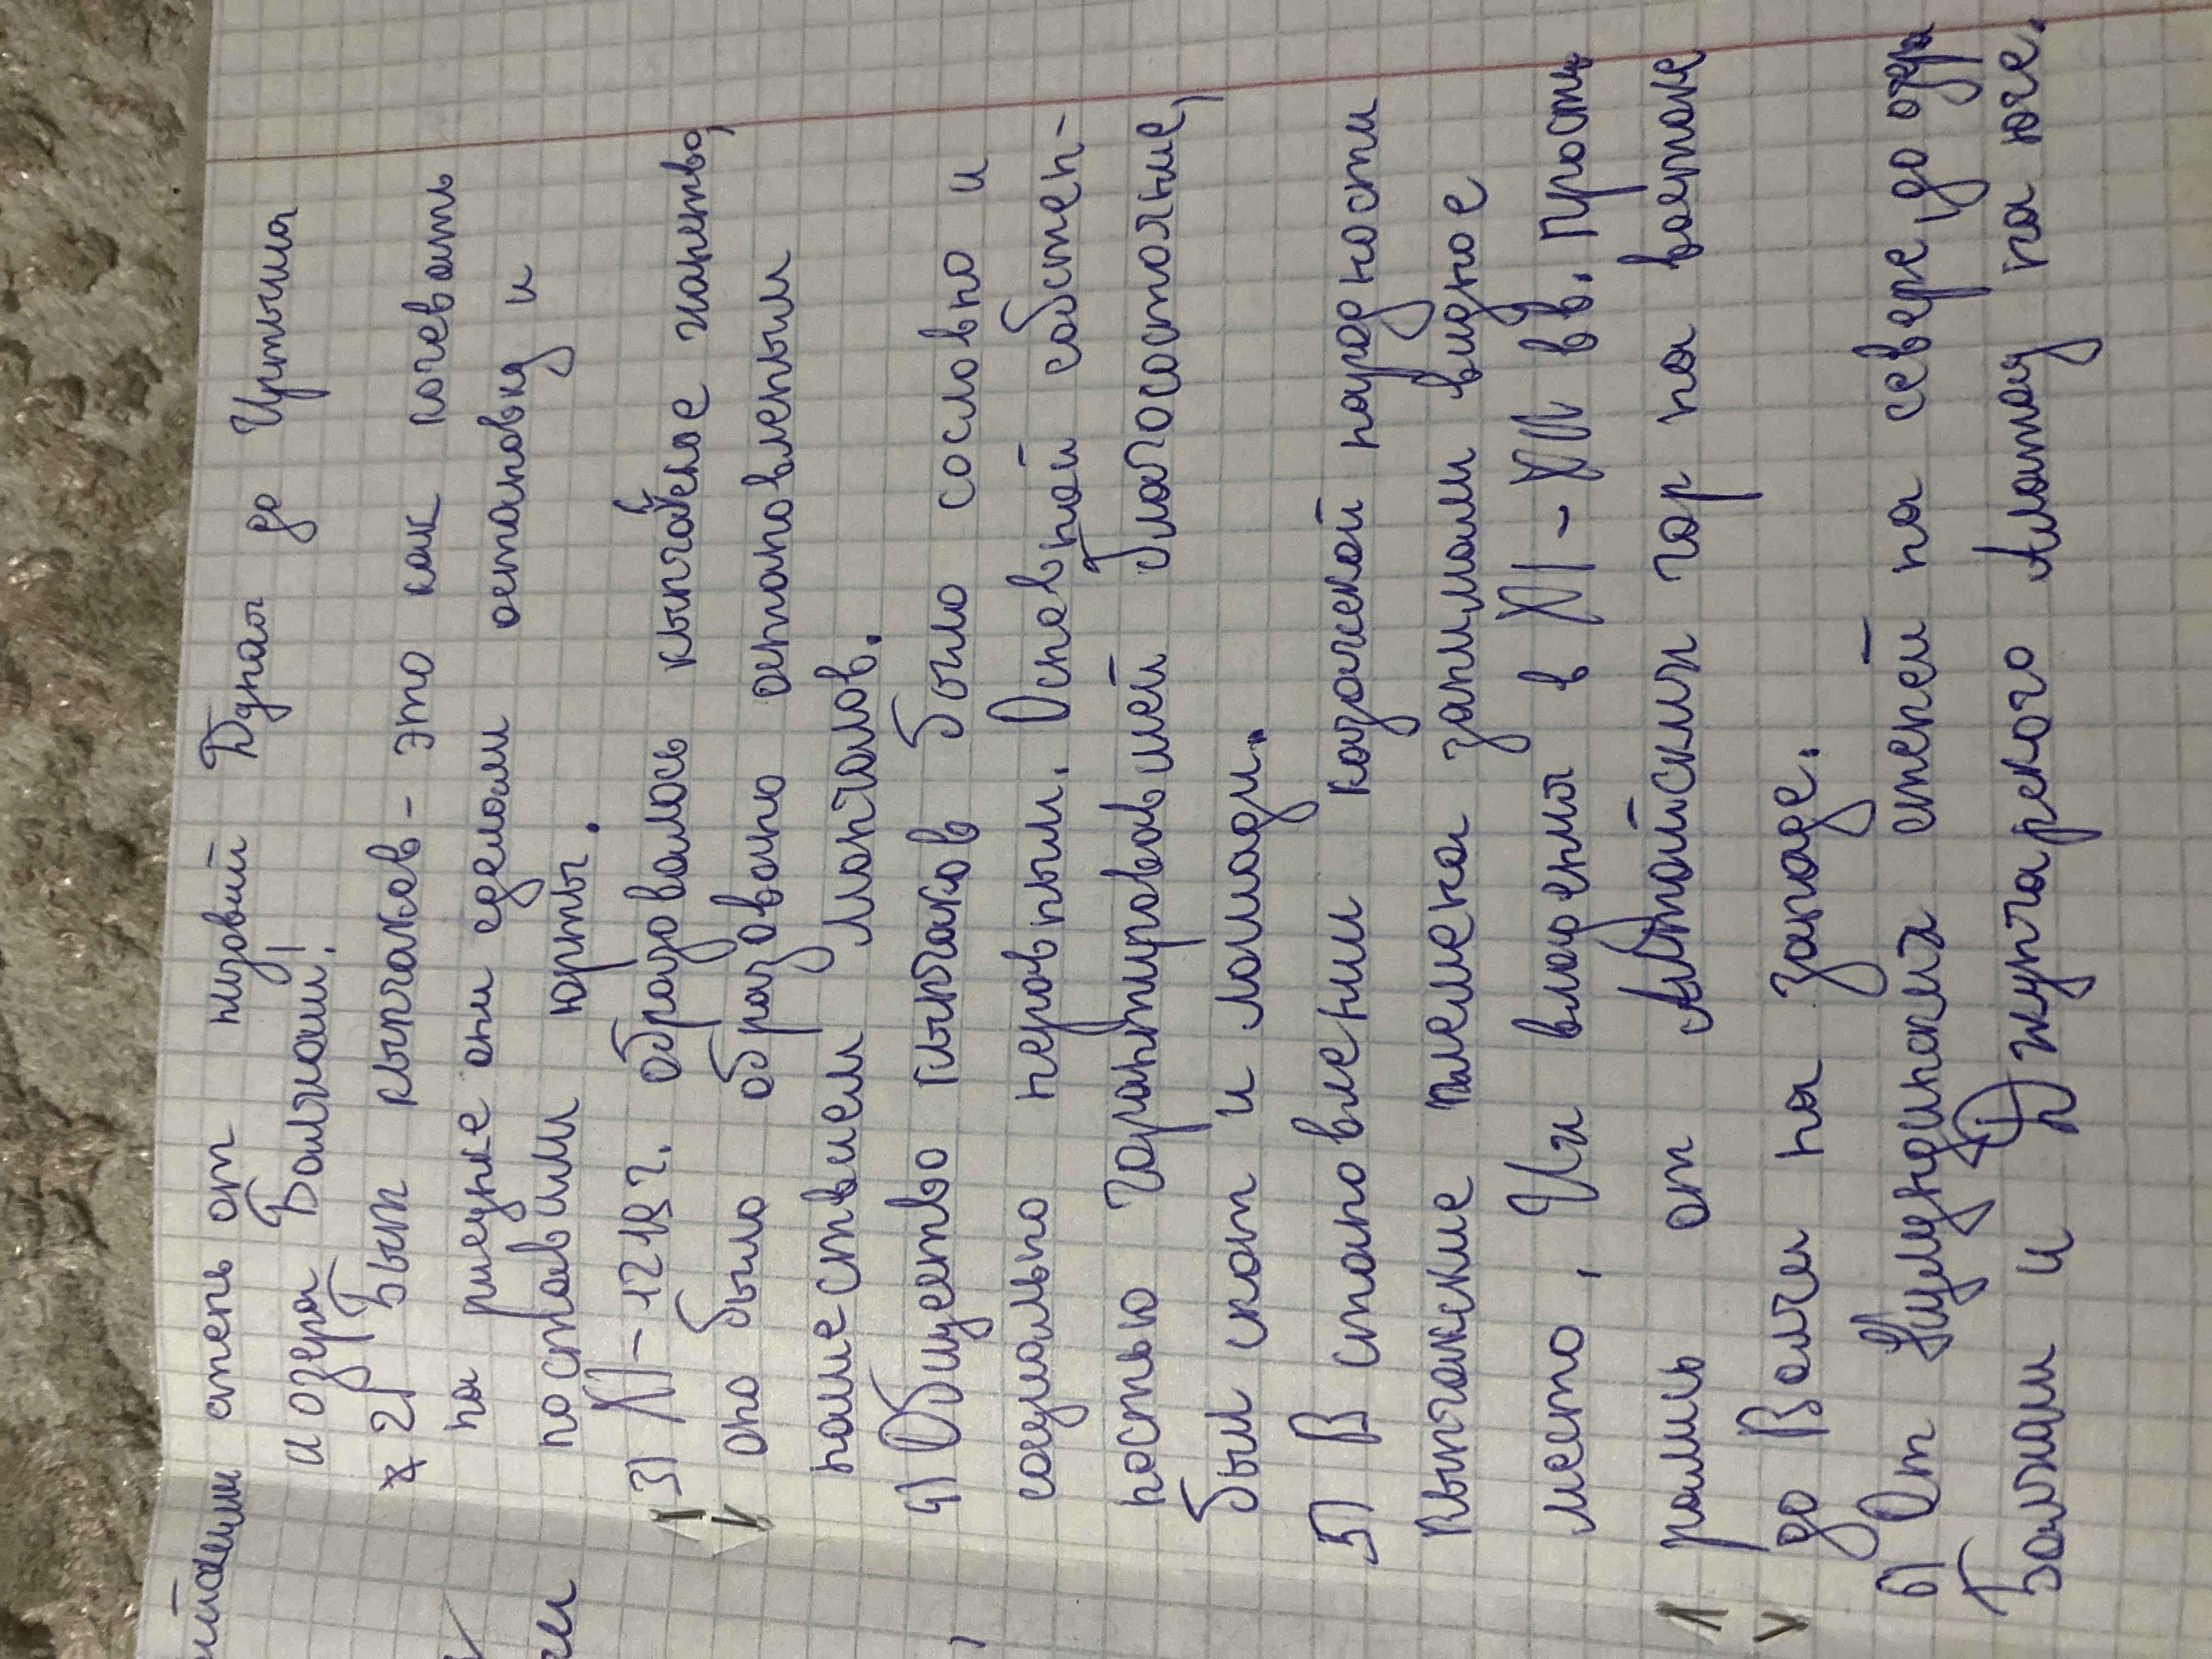 степь от низовий Дуная до Иртыша
и озера Балхаш!
2) Быт кыпчаков - это как кочевать
на рисунке они сделали остановку и
поставили юрты.
3) XI-1219 г. образовалось кыпчакское ханство,
оно было образовано основлеными
нашествием монголов.
4) Общество кыпчаков было сословно и
социально неровным. Основной собствен-
ностью гарантировавшей благосостояние,
был скот и лошади.
5) В становлении казахской народности
Кыпчакские племена занимали видное
место, Их владения в XI-XII вв. прости
рались от Алтайских гор на востоке
до Волги на западе.
6) От степей на севере, до озера
Балхаш и Джунгарского Алатау на юге.